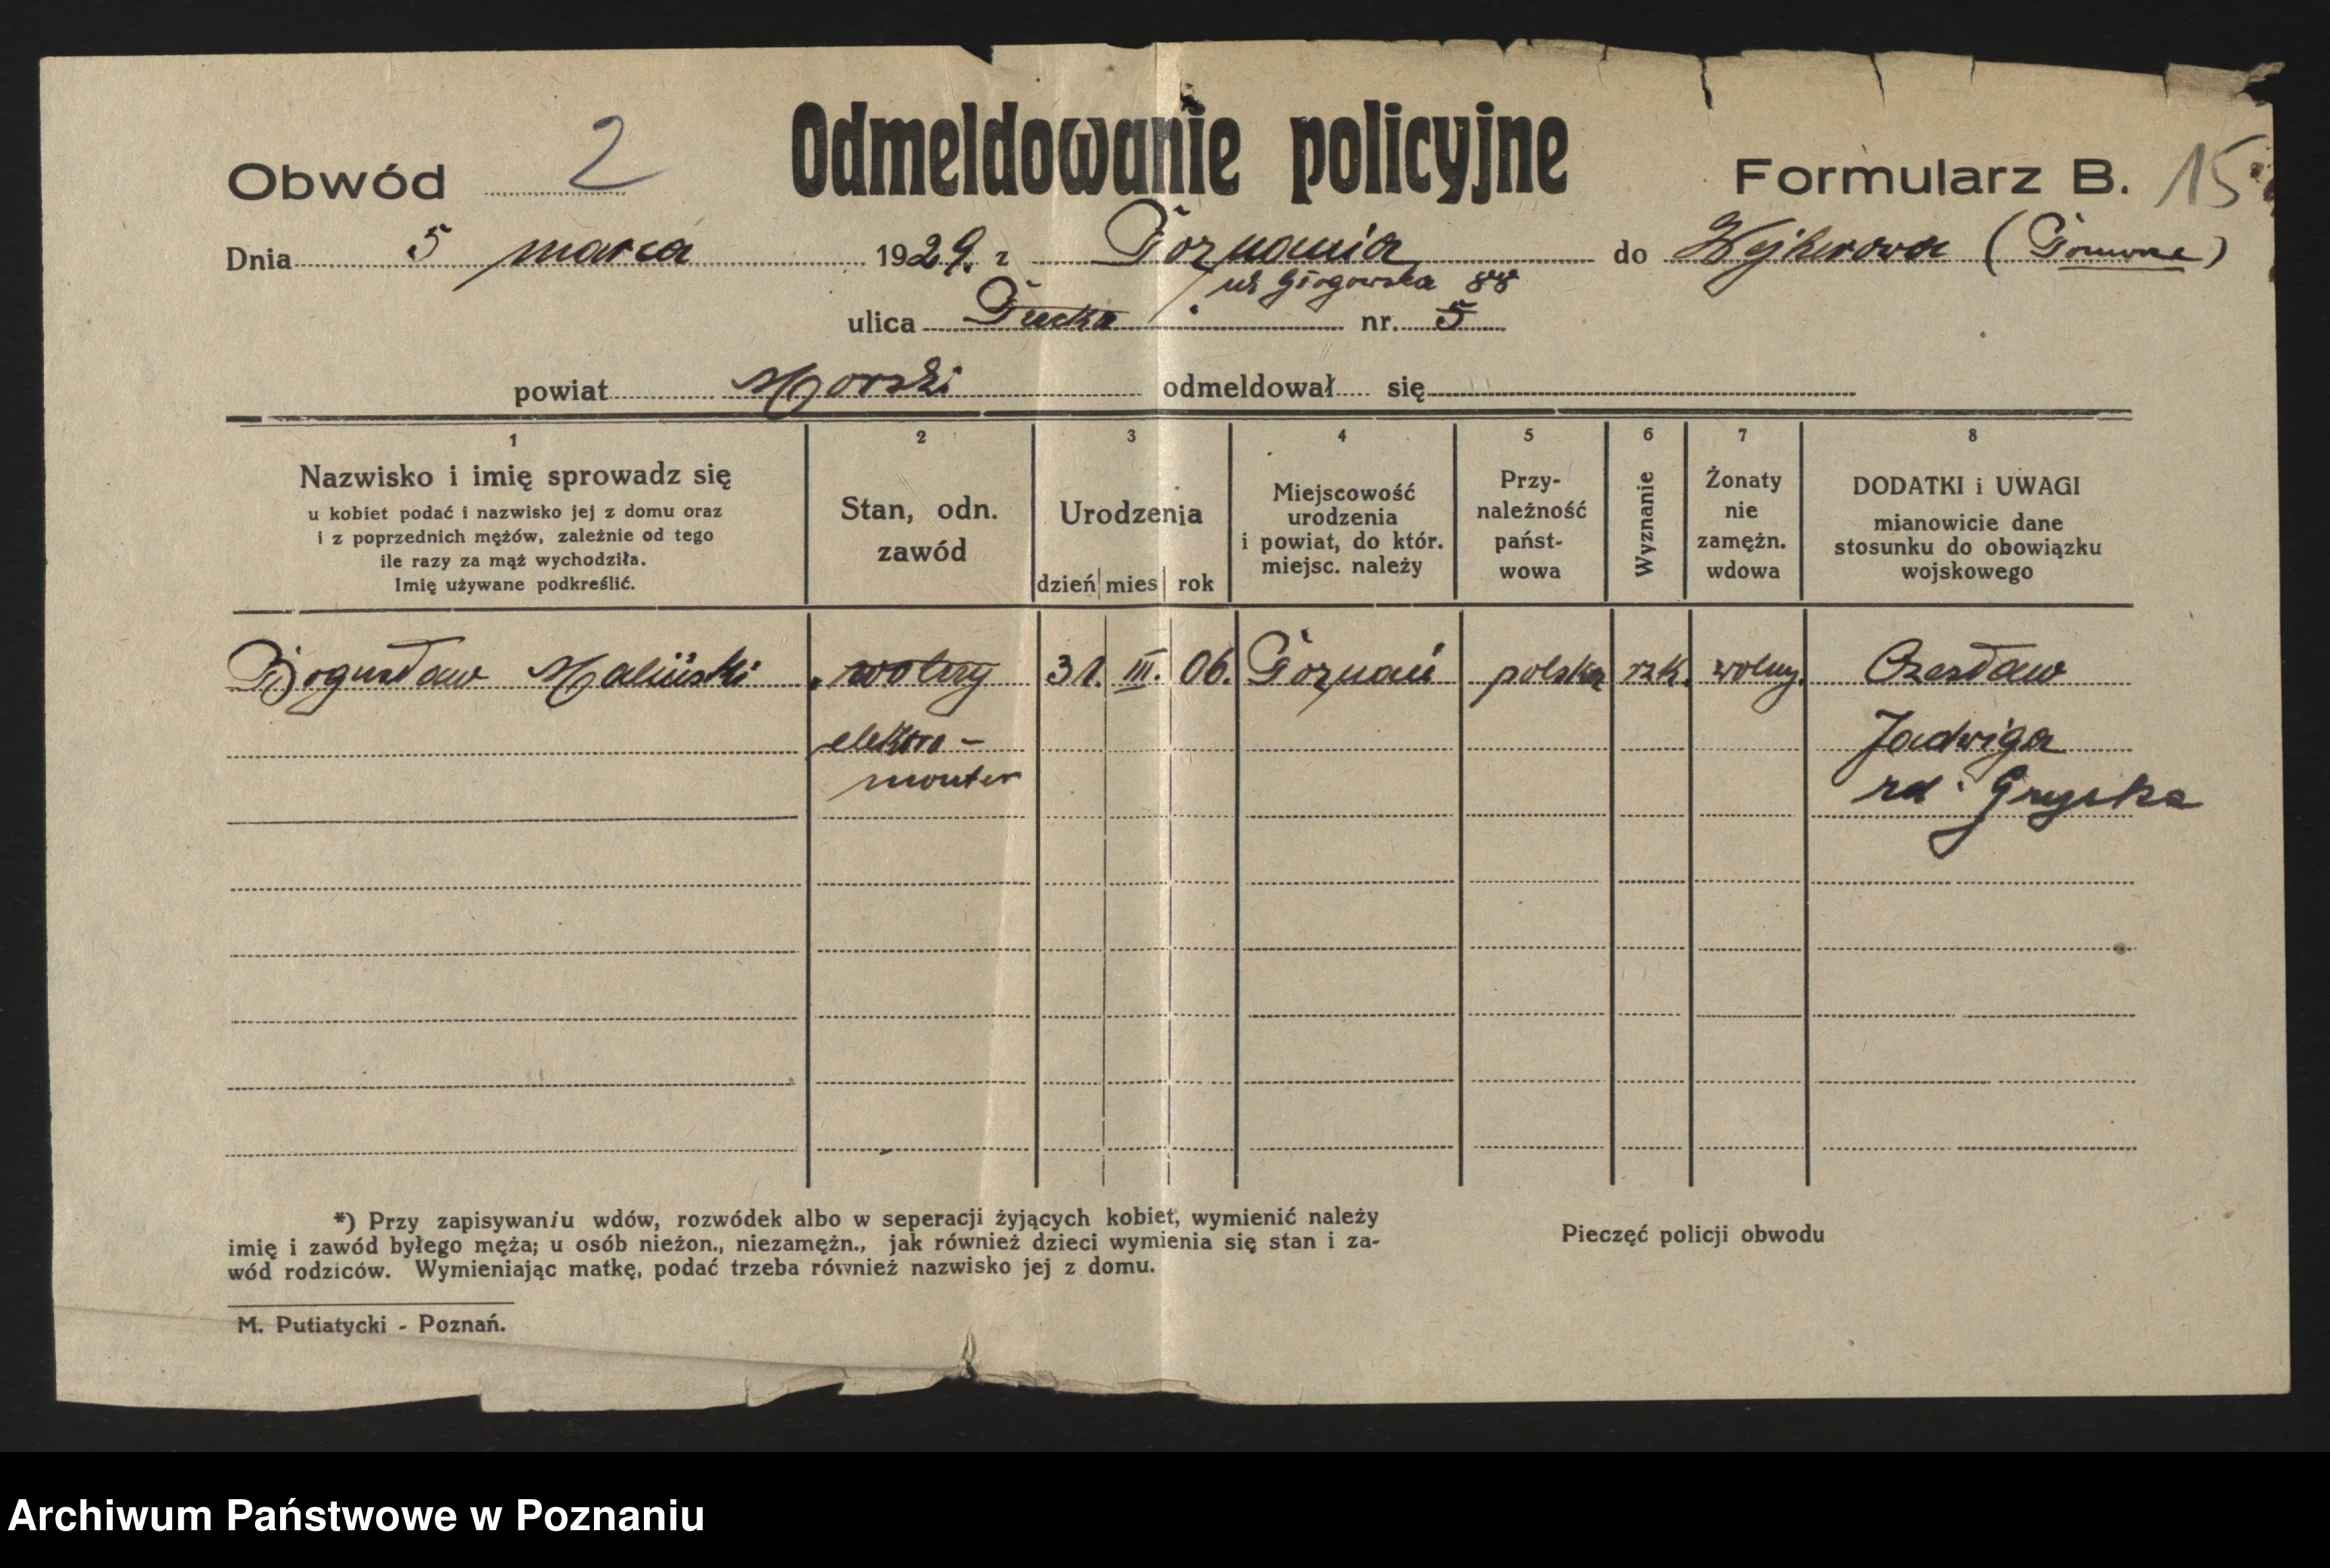 Obwód 2 Odmeldowanie policyjne Formularz B. 15
Dnia 5 marca 1929. z Poznania do Wejherowa (Pomorze)
ul Głogowska 88
ulica Pucka nr. 5
powiat Morski odmeldował się
1 2 3 4 5 6 7 8
Nazwisko i imię sprowadz się
u kobiet podać i nazwisko jej z domu oraz
i z poprzednich mężów, zależnie od tego
ile razy za mąż wychodziła.
Imię używane podkreślić.
Stan, odn.
zawód
Urodzenia
dzień mies rok
Miejscowość
urodzenia
i powiat, do któr.
miejsc. należy
Przy-
należność
państ-
wowa
Wyznanie
Żonaty
nie
zamężn.
wdowa
DODATKI i UWAGI
mianowicie dane
stosunku do obowiązku
wojskowego
Bogusław Maliński wolny 31. III. 06. Poznań polska rzk. wolny. Czesław
elektro- Jadwiga
monter
*) Przy zapisywaniu wdów, rozwódek albo w seperacji żyjących kobiet, wymienić należy
imię i zawód byłego męża; u osób nieżon., niezamężn., jak również dzieci wymienia się stan i za-
wód rodziców. Wymieniając matkę, podać trzeba również nazwisko jej z domu.
Pieczęć policji obwodu
M. Putiatycki - Poznań.
Archiwum Państwowe w Poznaniu